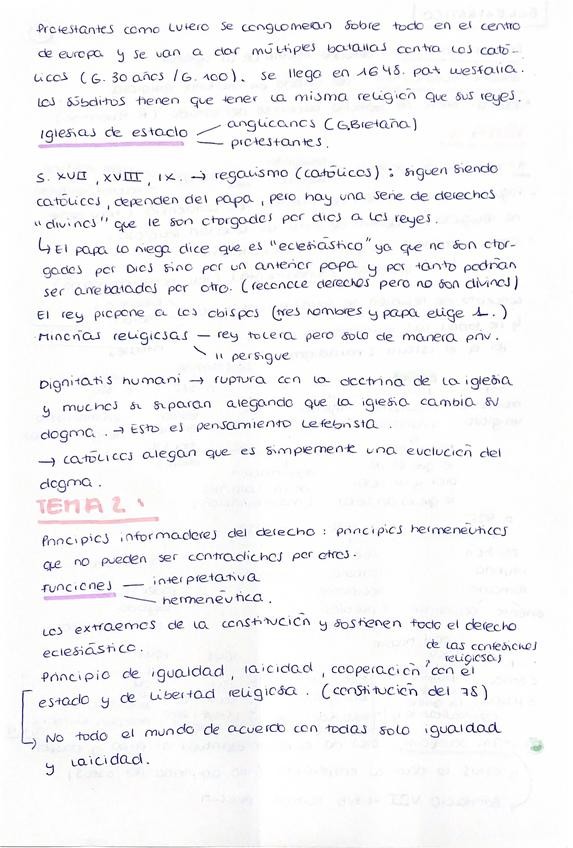 Protestantes como Lutero se conglomeran sobre todo en el centro
de europa y se van a dar múltiples batallas contra los cató-
licos (G. 30 años / G. 100). Se llega en 1648. pat westfalia.
Los súbditos tienen que tener la misma religión que sus reyes.
Iglesias de estado anglicanos (G.Bretaña)
protestantes.
S. XVII, XVIII, IX. → regalismo (católicos) : siguen siendo
católicos, dependen del papa, pero hay una serie de derechos
"divinos" que le son otorgados por dios a los reyes.
↳ El papa lo niega dice que es "eclesiástico" ya que no son otor-
gados por Dios sino por un anterior papa y por tanto podrían
ser arrebatados por otro. (reconoce derechos pero no son divinos)
El rey propone a los obispos (tres nombres y papa elige 1.)
Minorías religiosas — rey tolera pero solo de manera priv.
" persigue
Dignitatis humani → ruptura con la doctrina de la iglesia
y muchos se separan alegando que la iglesia cambia su
dogma. → Esto es pensamiento Lefebrista.
→ católicos alegan que es simplemente una evolución del
dogma.
TEMA 2.
Principios informadores del derecho : principios hermenéuticos
que no pueden ser contradichos por otros.
Funciones — interpretativa
hermenéutica.
Los extraemos de la constitución y sostienen todo el derecho
eclesiástico.
de las confesiones
religiosas
Principio de igualdad, laicidad, cooperación, con el
estado y de libertad religiosa. (constitución del 78)
No todo el mundo de acuerdo con todas solo igualdad
y laicidad.